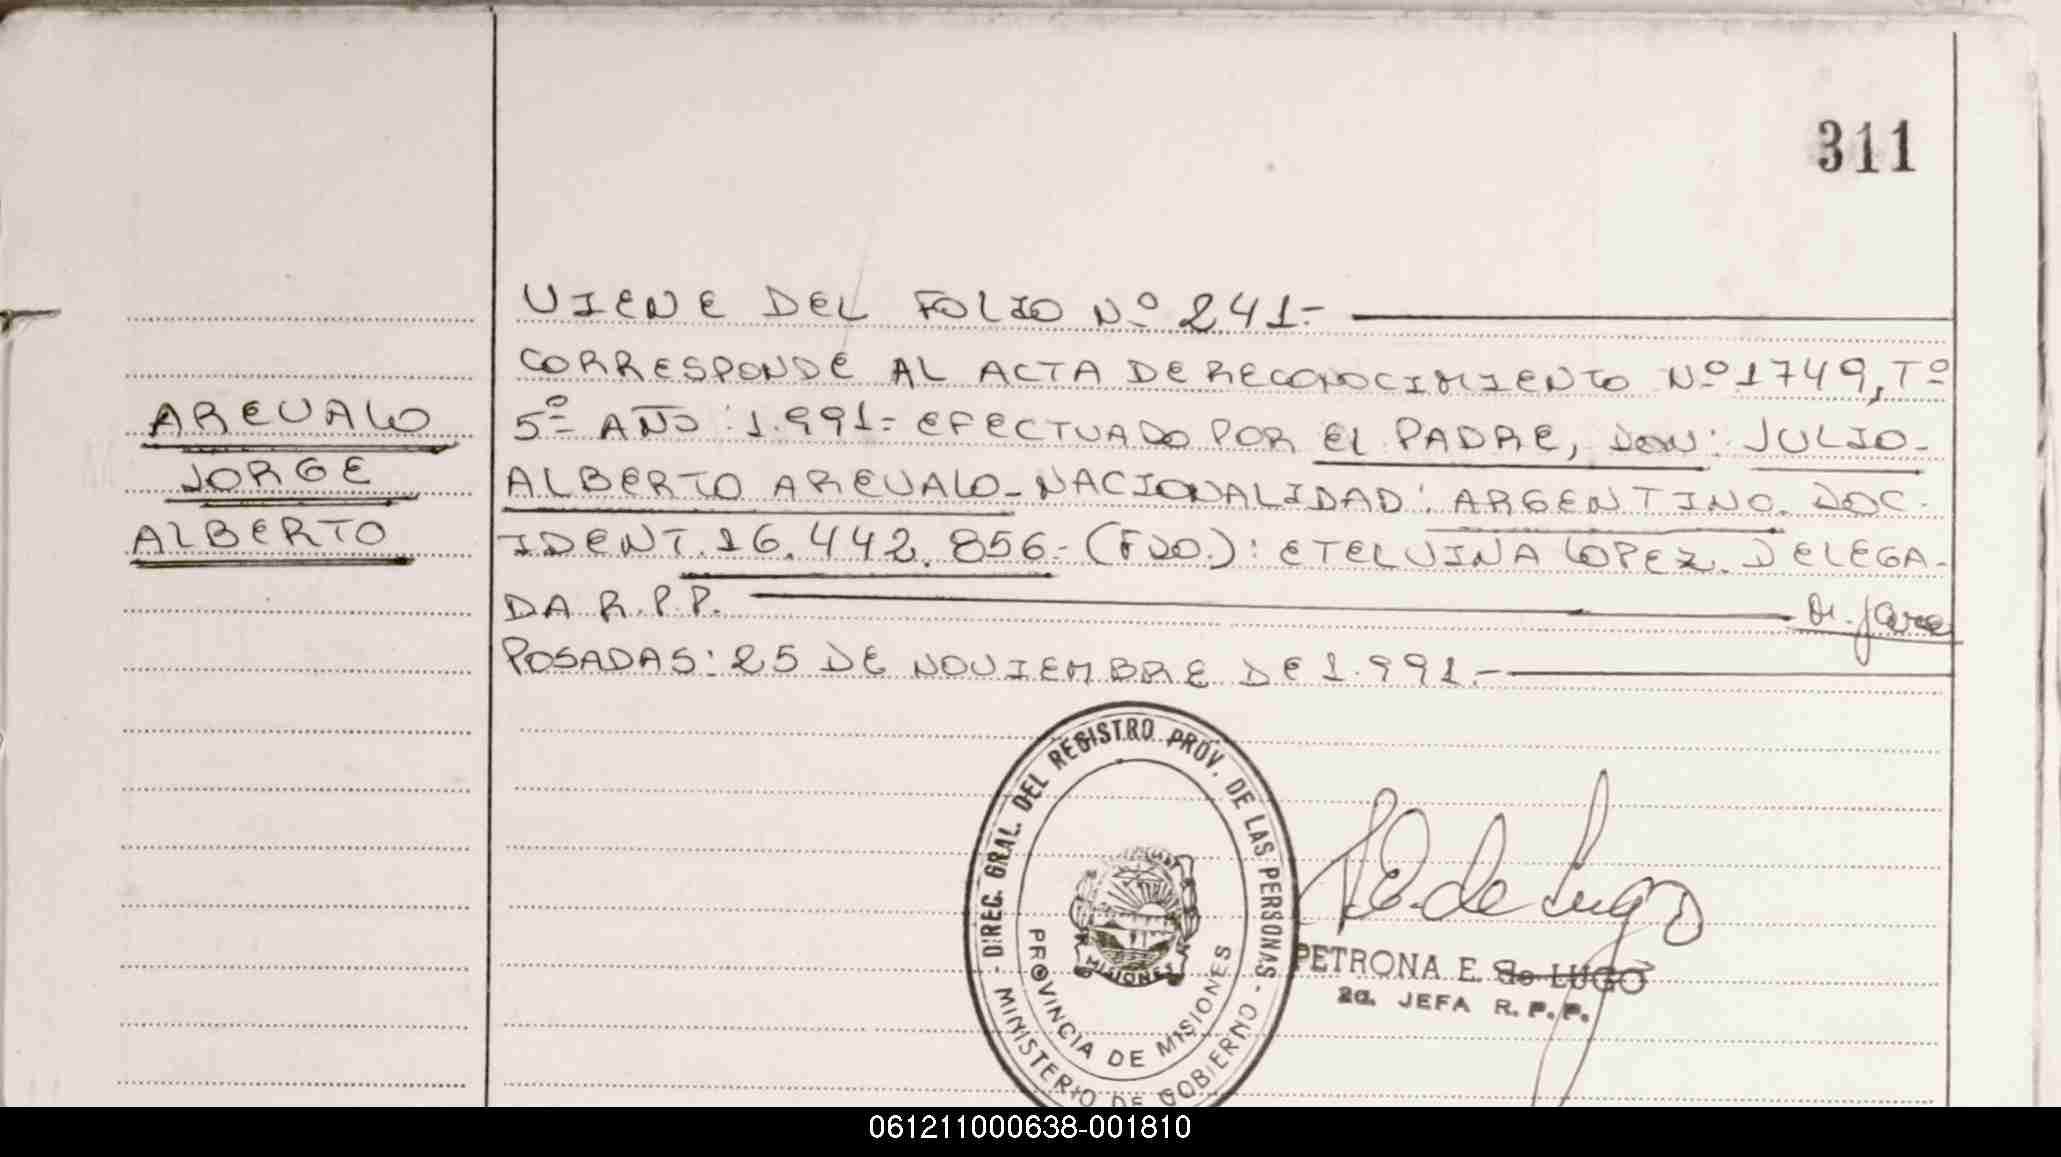 311
VIENE DEL FOLIO Nº 241.-
CORRESPONDE AL ACTA DE RECONOCIMIENTO Nº 1749, Tº
AREVALO
5º AÑO: 1.991.- EFECTUADO POR EL PADRE, DON: JULIO-
JORGE
ALBERTO AREVALO- NACIONALIDAD: ARGENTINO. DOC.
ALBERTO
IDENT. 16.442.856.- (FDO.): ETELVINA LOPEZ. DELEGA-
DA R.P.P.
POSADAS: 25 DE NOVIEMBRE DE 1.991.-
- DIREC. GRAL. DEL REGISTRO PROV. DE LAS PERSONAS -
MINISTERIO DE GOBIERNO
PROVINCIA DE MISIONES
MISIONES
P.E. de Lugo
PETRONA E. de LUGO
2a. JEFA R.P.P.
061211000638-001810